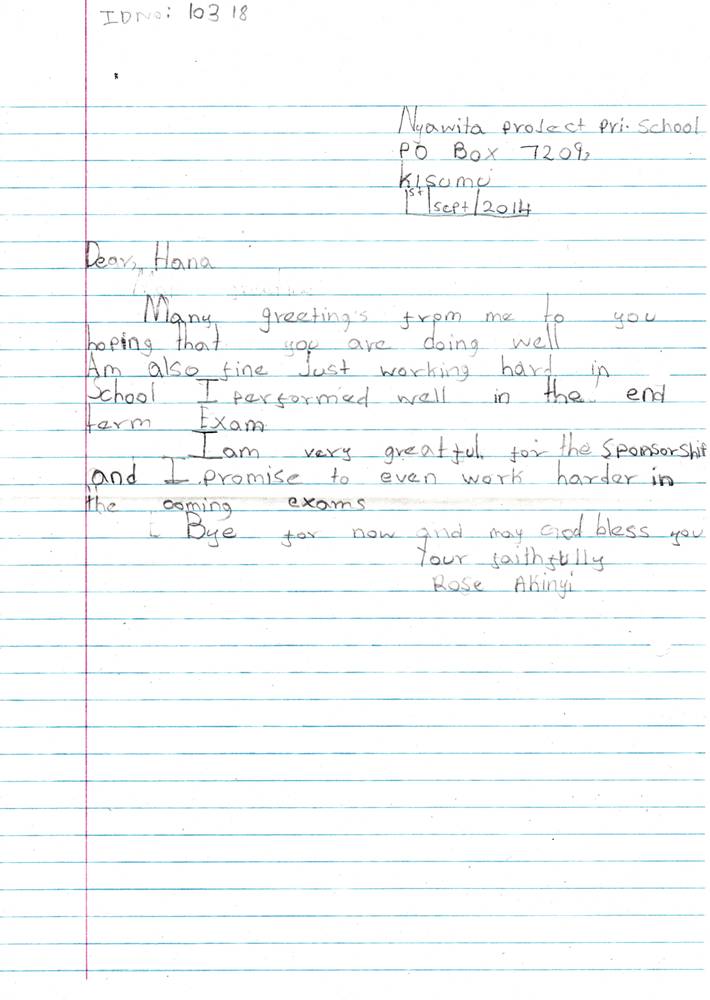 IDNo: 10318
Nyawita project pri. School
PO Box 7209,
Kisumu
1st/sept/2014
Dear, Hana
Many greeting's from me to you
hoping that you are doing well
Am also fine Just working hard in
School I performed well in the end
term Exam
I am very greatful for the Sponsorship
and I promise to even work harder in
the coming exams
Bye for now and may God bless you
Your faithfully
Rose Akinyi